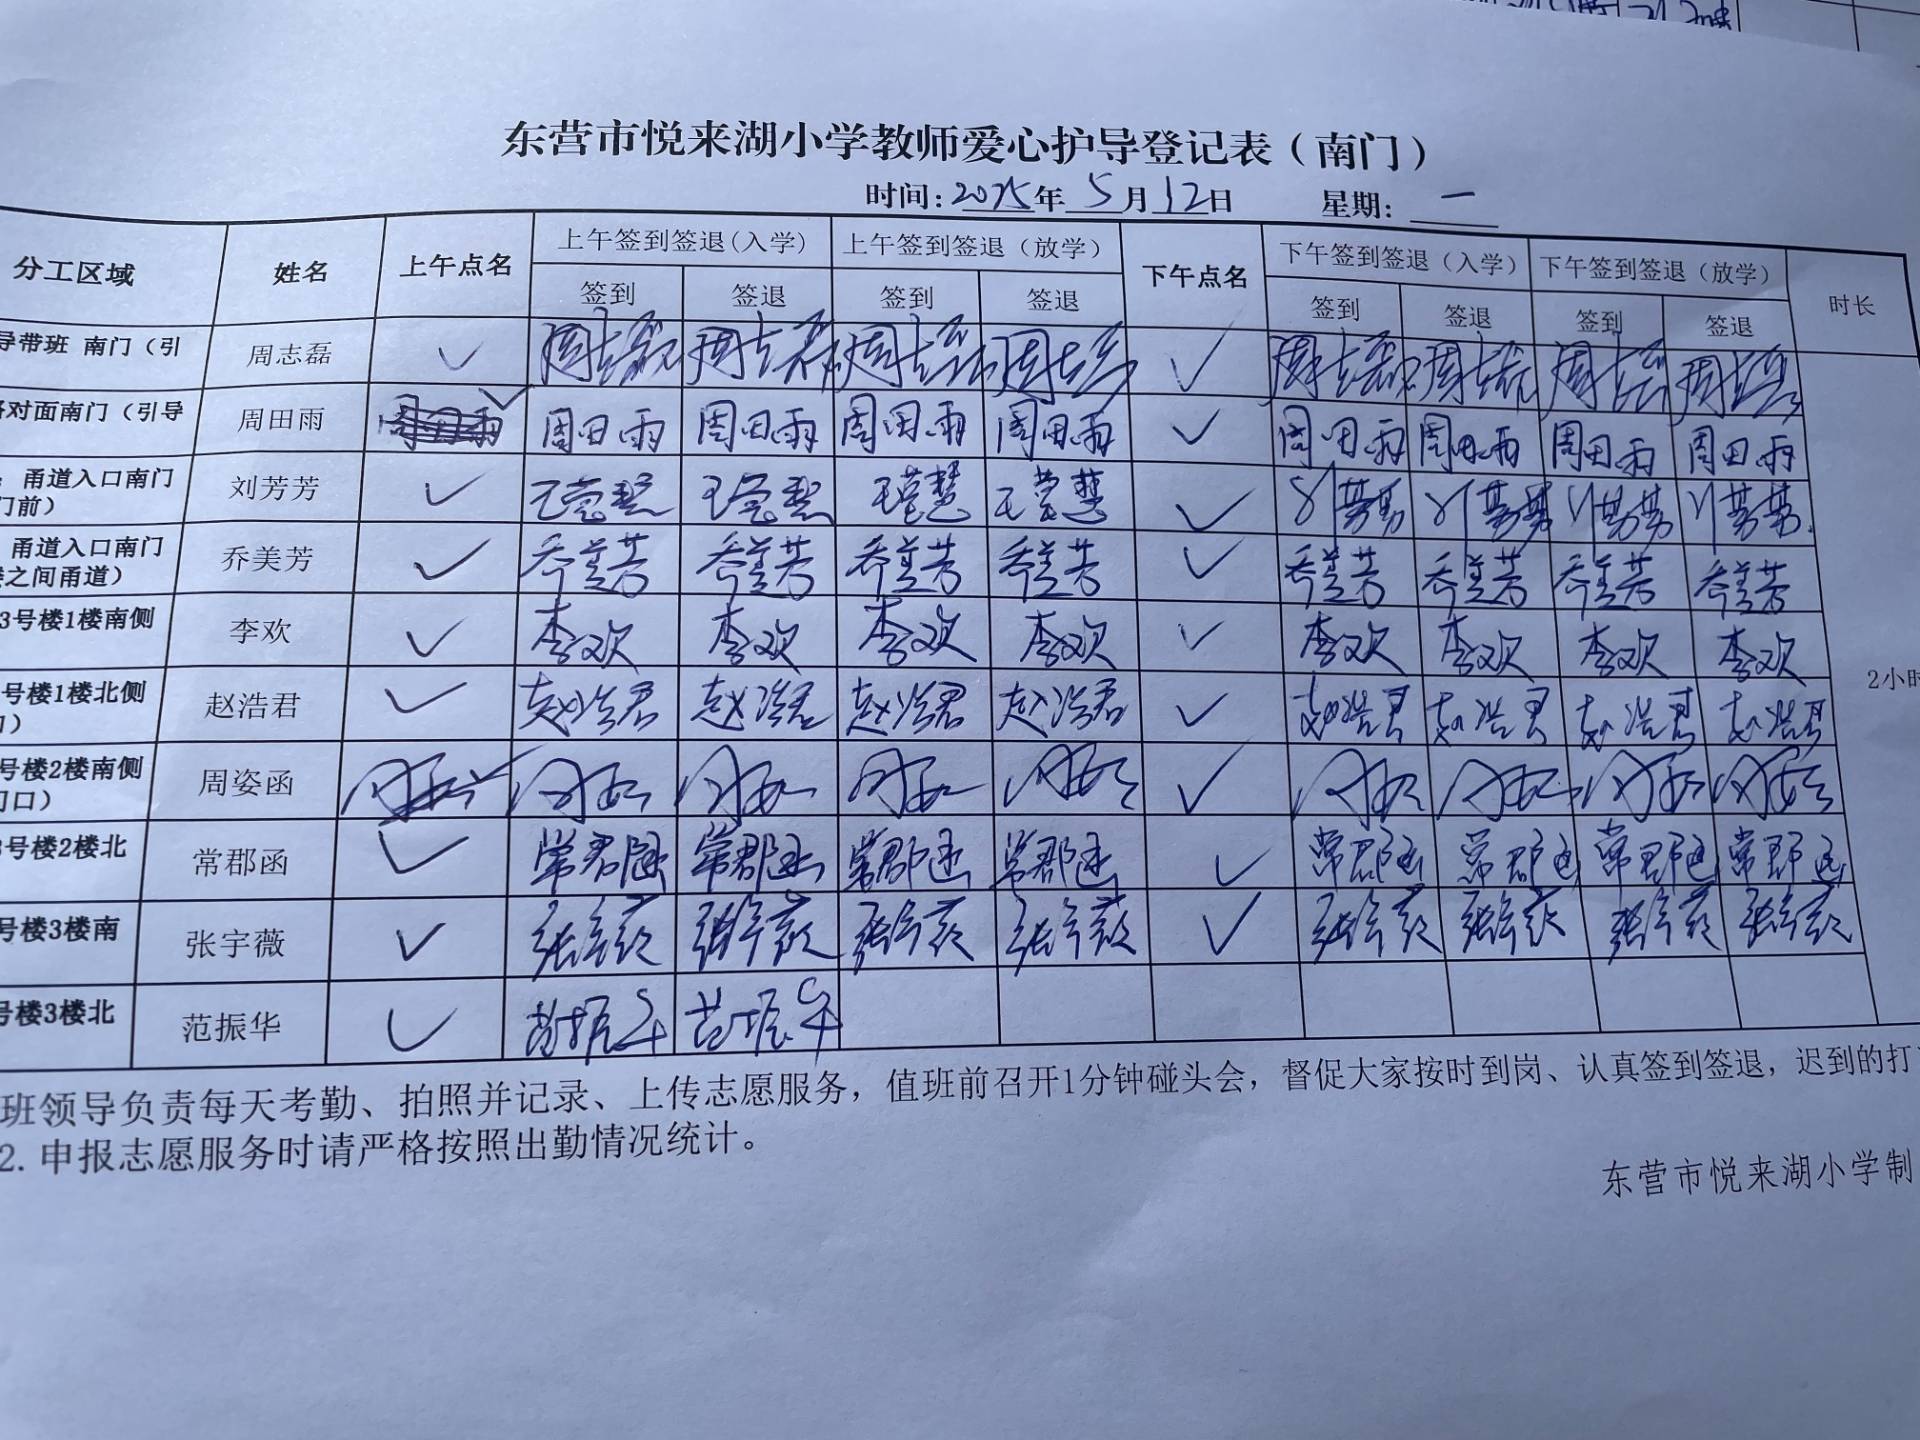 东营市悦来湖小学教师爱心护导登记表（南门）
时间：2025年 5月12日 星期：一
分工区域 姓名 上午点名 上午签到签退(入学) 上午签到签退（放学） 下午点名 下午签到签退（入学） 下午签到签退（放学） 时长
签到 签退 签到 签退 签到 签退 签到 签退
导带班 南门（引 周志磊 ✓ 周志磊 周志磊 周志磊 周志磊 ✓ 周志磊 周志磊 周志磊 周志磊
对面南门（引导 周田雨 周田雨 ✓ 周田雨 周田雨 周田雨 周田雨 ✓ 周田雨 周田雨 周田雨 周田雨
甬道入口南门
门前） 刘芳芳 ✓ 王莹慧 王莹慧 王莹慧 王莹慧 ✓ 刘芳芳 刘芳芳 刘芳芳 刘芳芳
甬道入口南门
之间甬道） 乔美芳 ✓ 乔美芳 乔美芳 乔美芳 乔美芳 ✓ 乔美芳 乔美芳 乔美芳 乔美芳
3号楼1楼南侧 李欢 ✓ 李欢 李欢 李欢 李欢 ✓ 李欢 李欢 李欢 李欢
号楼1楼北侧
口） 赵浩君 ✓ 赵浩君 赵浩君 赵浩君 赵浩君 ✓ 赵浩君 赵浩君 赵浩君 赵浩君
2小时
号楼2楼南侧
门口） 周姿函 ✓ ✓
3号楼2楼北 常郡函 ✓ 常郡函 常郡函 常郡函 常郡函 ✓ 常郡函 常郡函 常郡函 常郡函
号楼3楼南 张宇薇 ✓ 张宇薇 张宇薇 张宇薇 张宇薇 ✓ 张宇薇 张宇薇 张宇薇 张宇薇
号楼3楼北 范振华 ✓ 范振华 范振华
班领导负责每天考勤、拍照并记录、上传志愿服务，值班前召开1分钟碰头会，督促大家按时到岗、认真签到签退，迟到的打
2.申报志愿服务时请严格按照出勤情况统计。
东营市悦来湖小学制